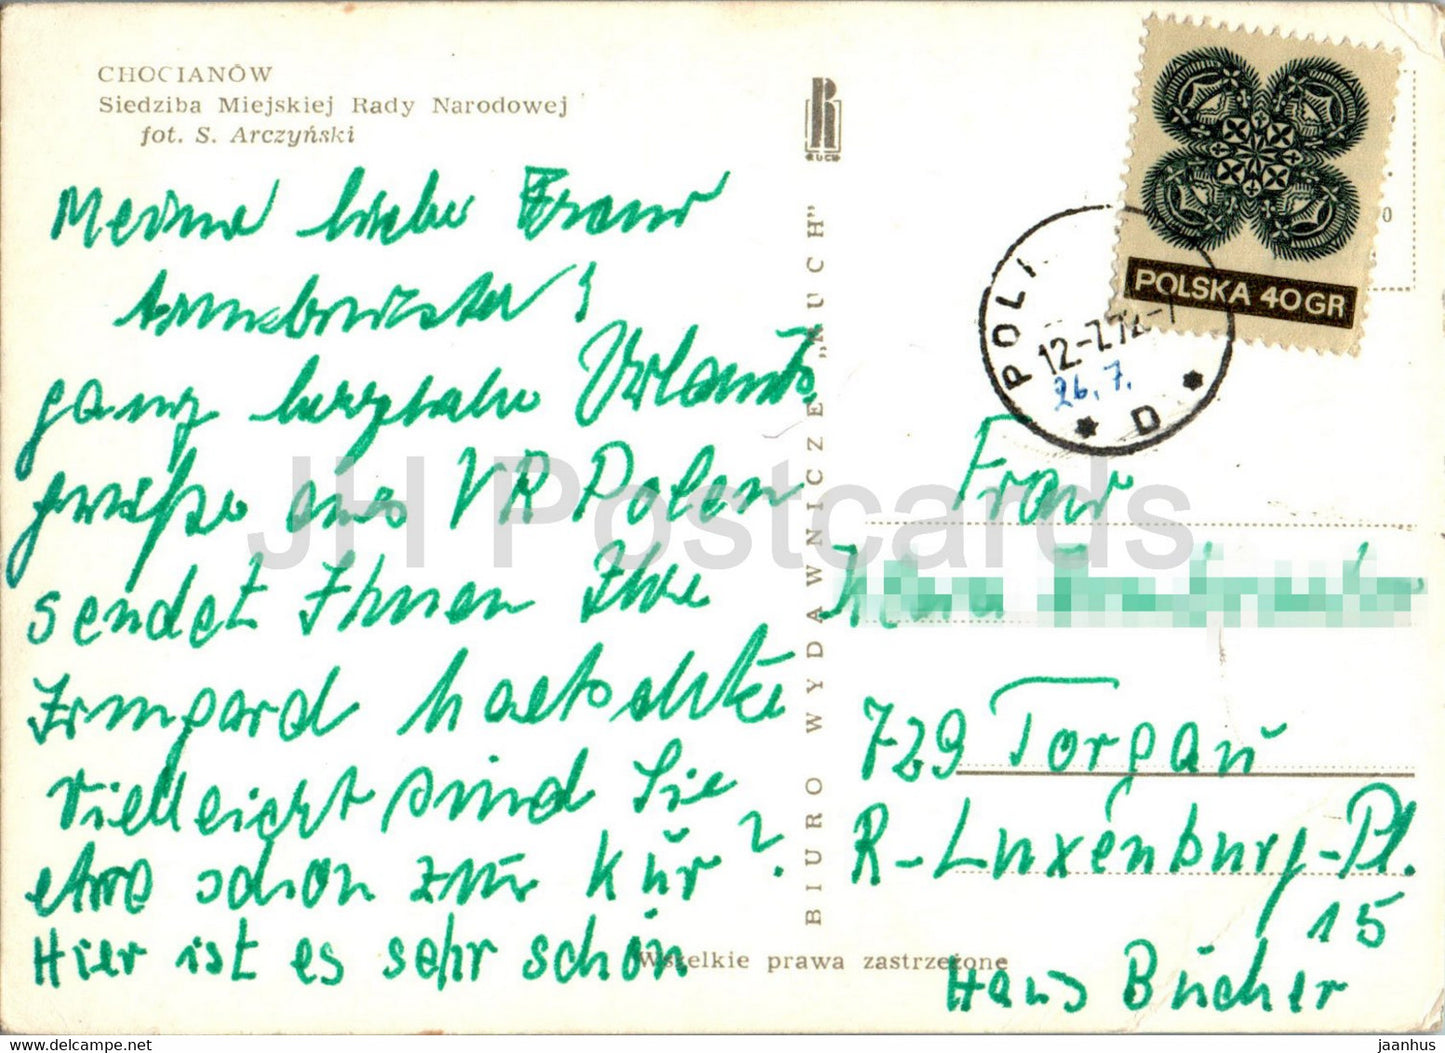 CHOCIANÓW
Siedziba Miejskiej Rady Narodowej
fot. S. Arczyński
Meine liebe Frau
Armbruster!
ganz herzliche Urlaubs
grüße aus VR Polen
sendet Ihnen Ihre
Irmgard
Vielleicht sind Sie
etwa schon zur Kur?
Hier ist es sehr schön
RUCH
BIURO WYDAWNICZE „RUCH"
Wszelkie prawa zastrzeżone
POLSKA 40GR
POL
12.-7.72-
26.7.
D
Frau
729 Torgau
R-Luxenburg-Pl.
15
Hans Bücher
JH Postcards
www.delcampe.net
jaanhus